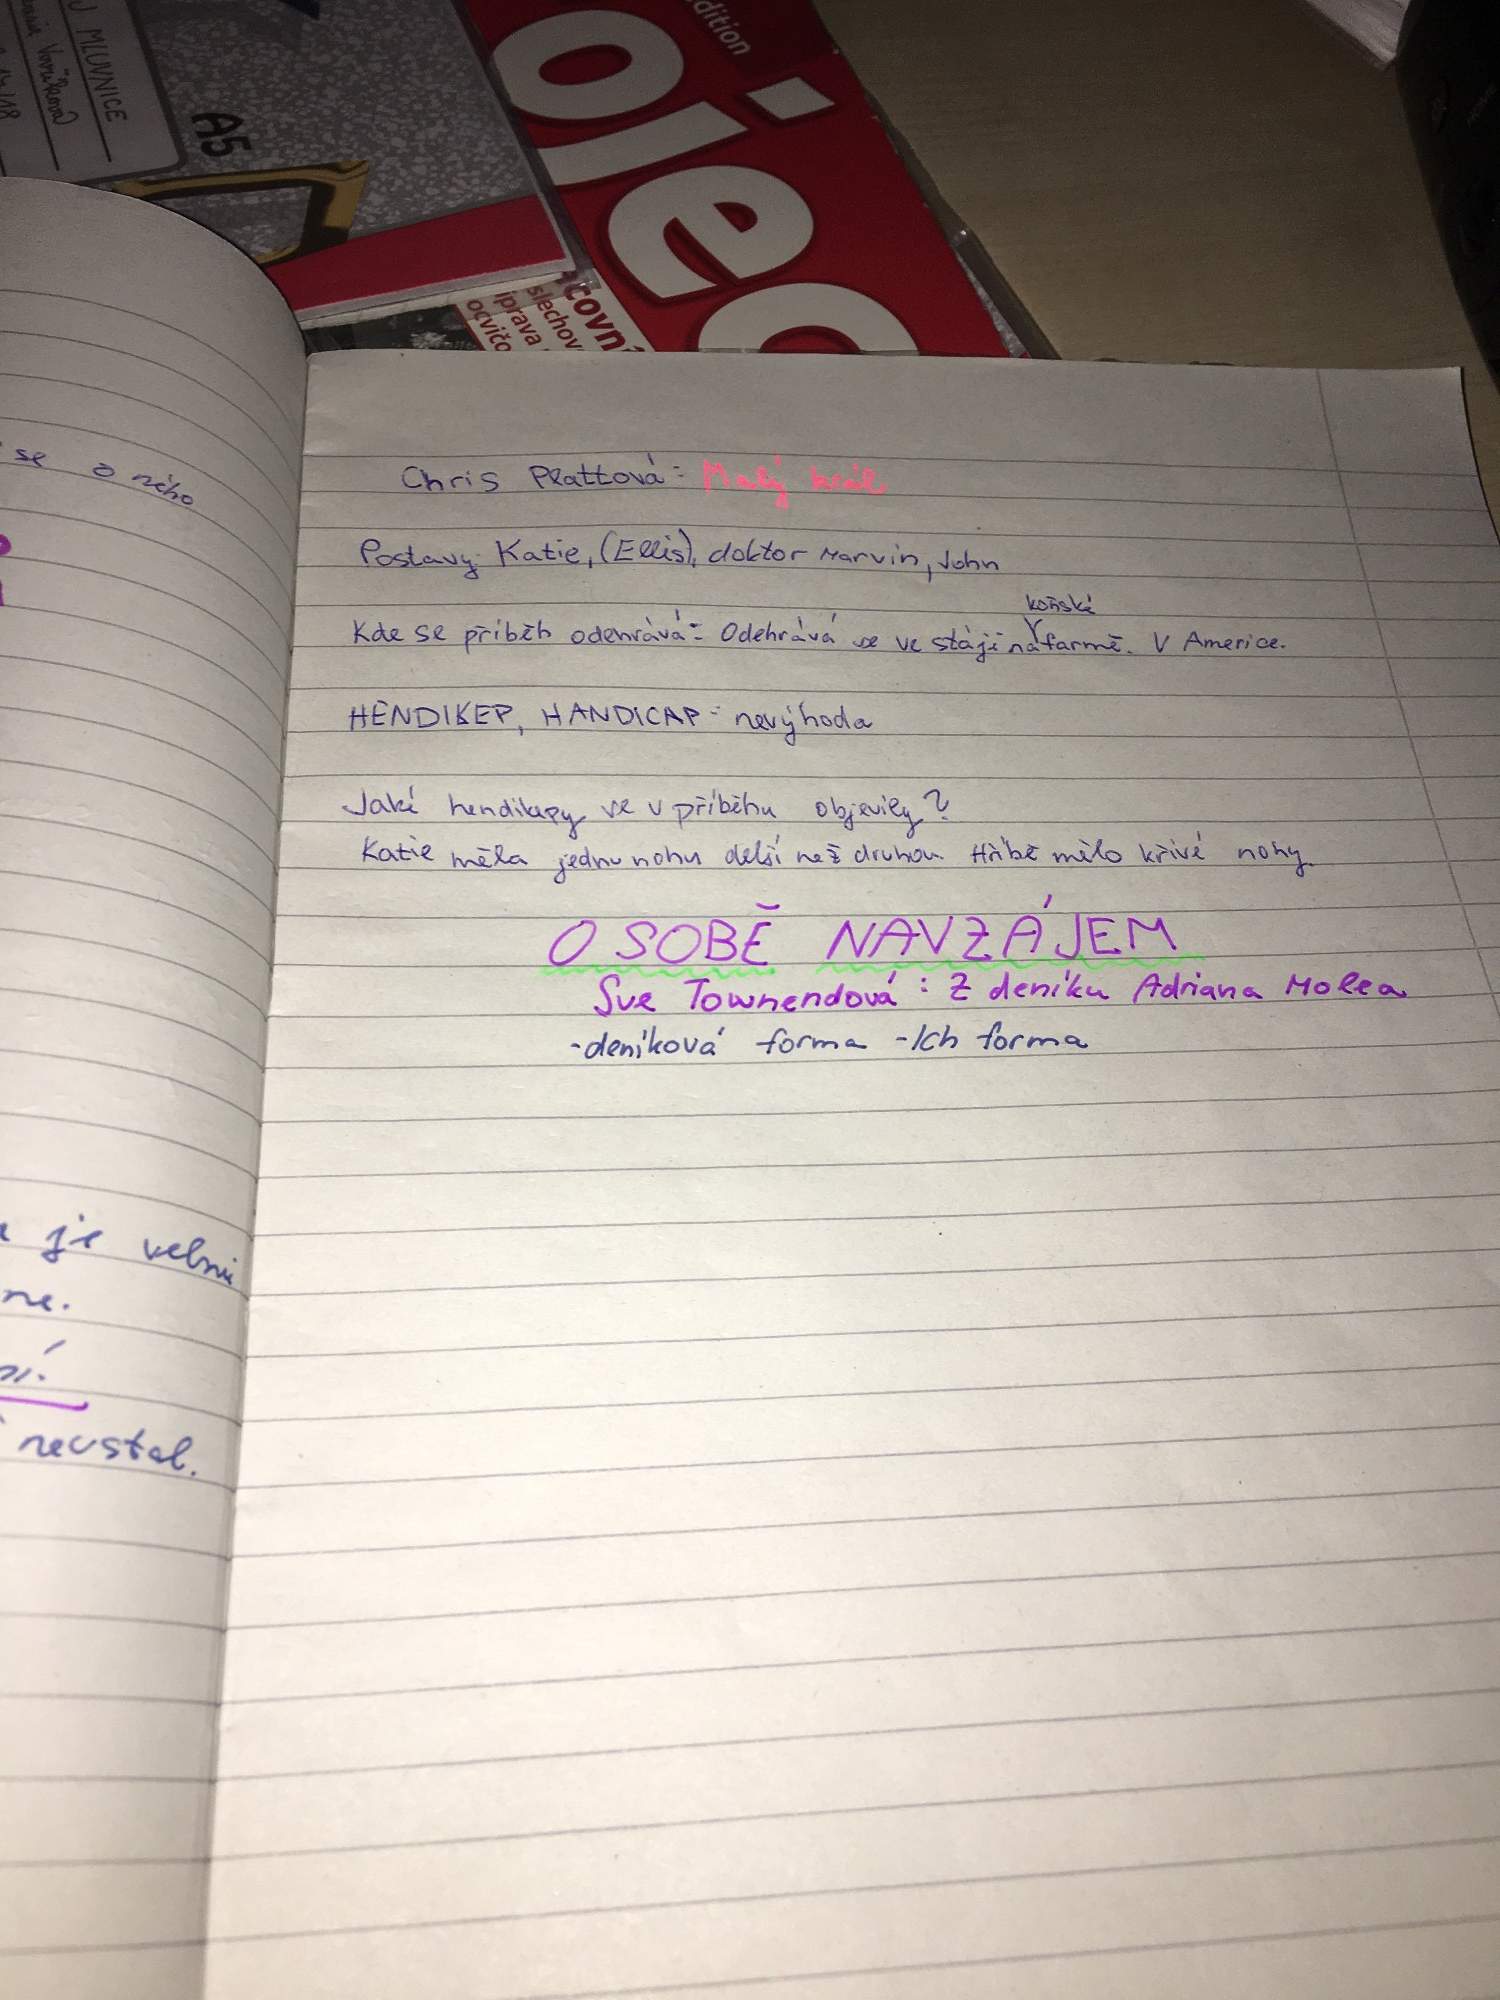 J MLUVNICE
A5
dition
ojec
covní
slechov
iprava
ocvičo
se o něho
je velmi
ne.
neustal.
Chris Plattová: Malý král
Postavy: Katie, (Ellis), doktor Marvin, John
koňské
Kde se příběh odehrává: Odehrává se ve stáji na farmě. V Americe.
HENDIKEP, HANDICAP - nevýhoda
Jaké hendikepy se v příběhu objevily?
Katie měla jednu nohu delší než druhou. Hříbě mělo křivé nohy.
O SOBĚ NAVZÁJEM
Sue Townendová: Z deníku Adriana Molea
-deníková forma -Ich forma